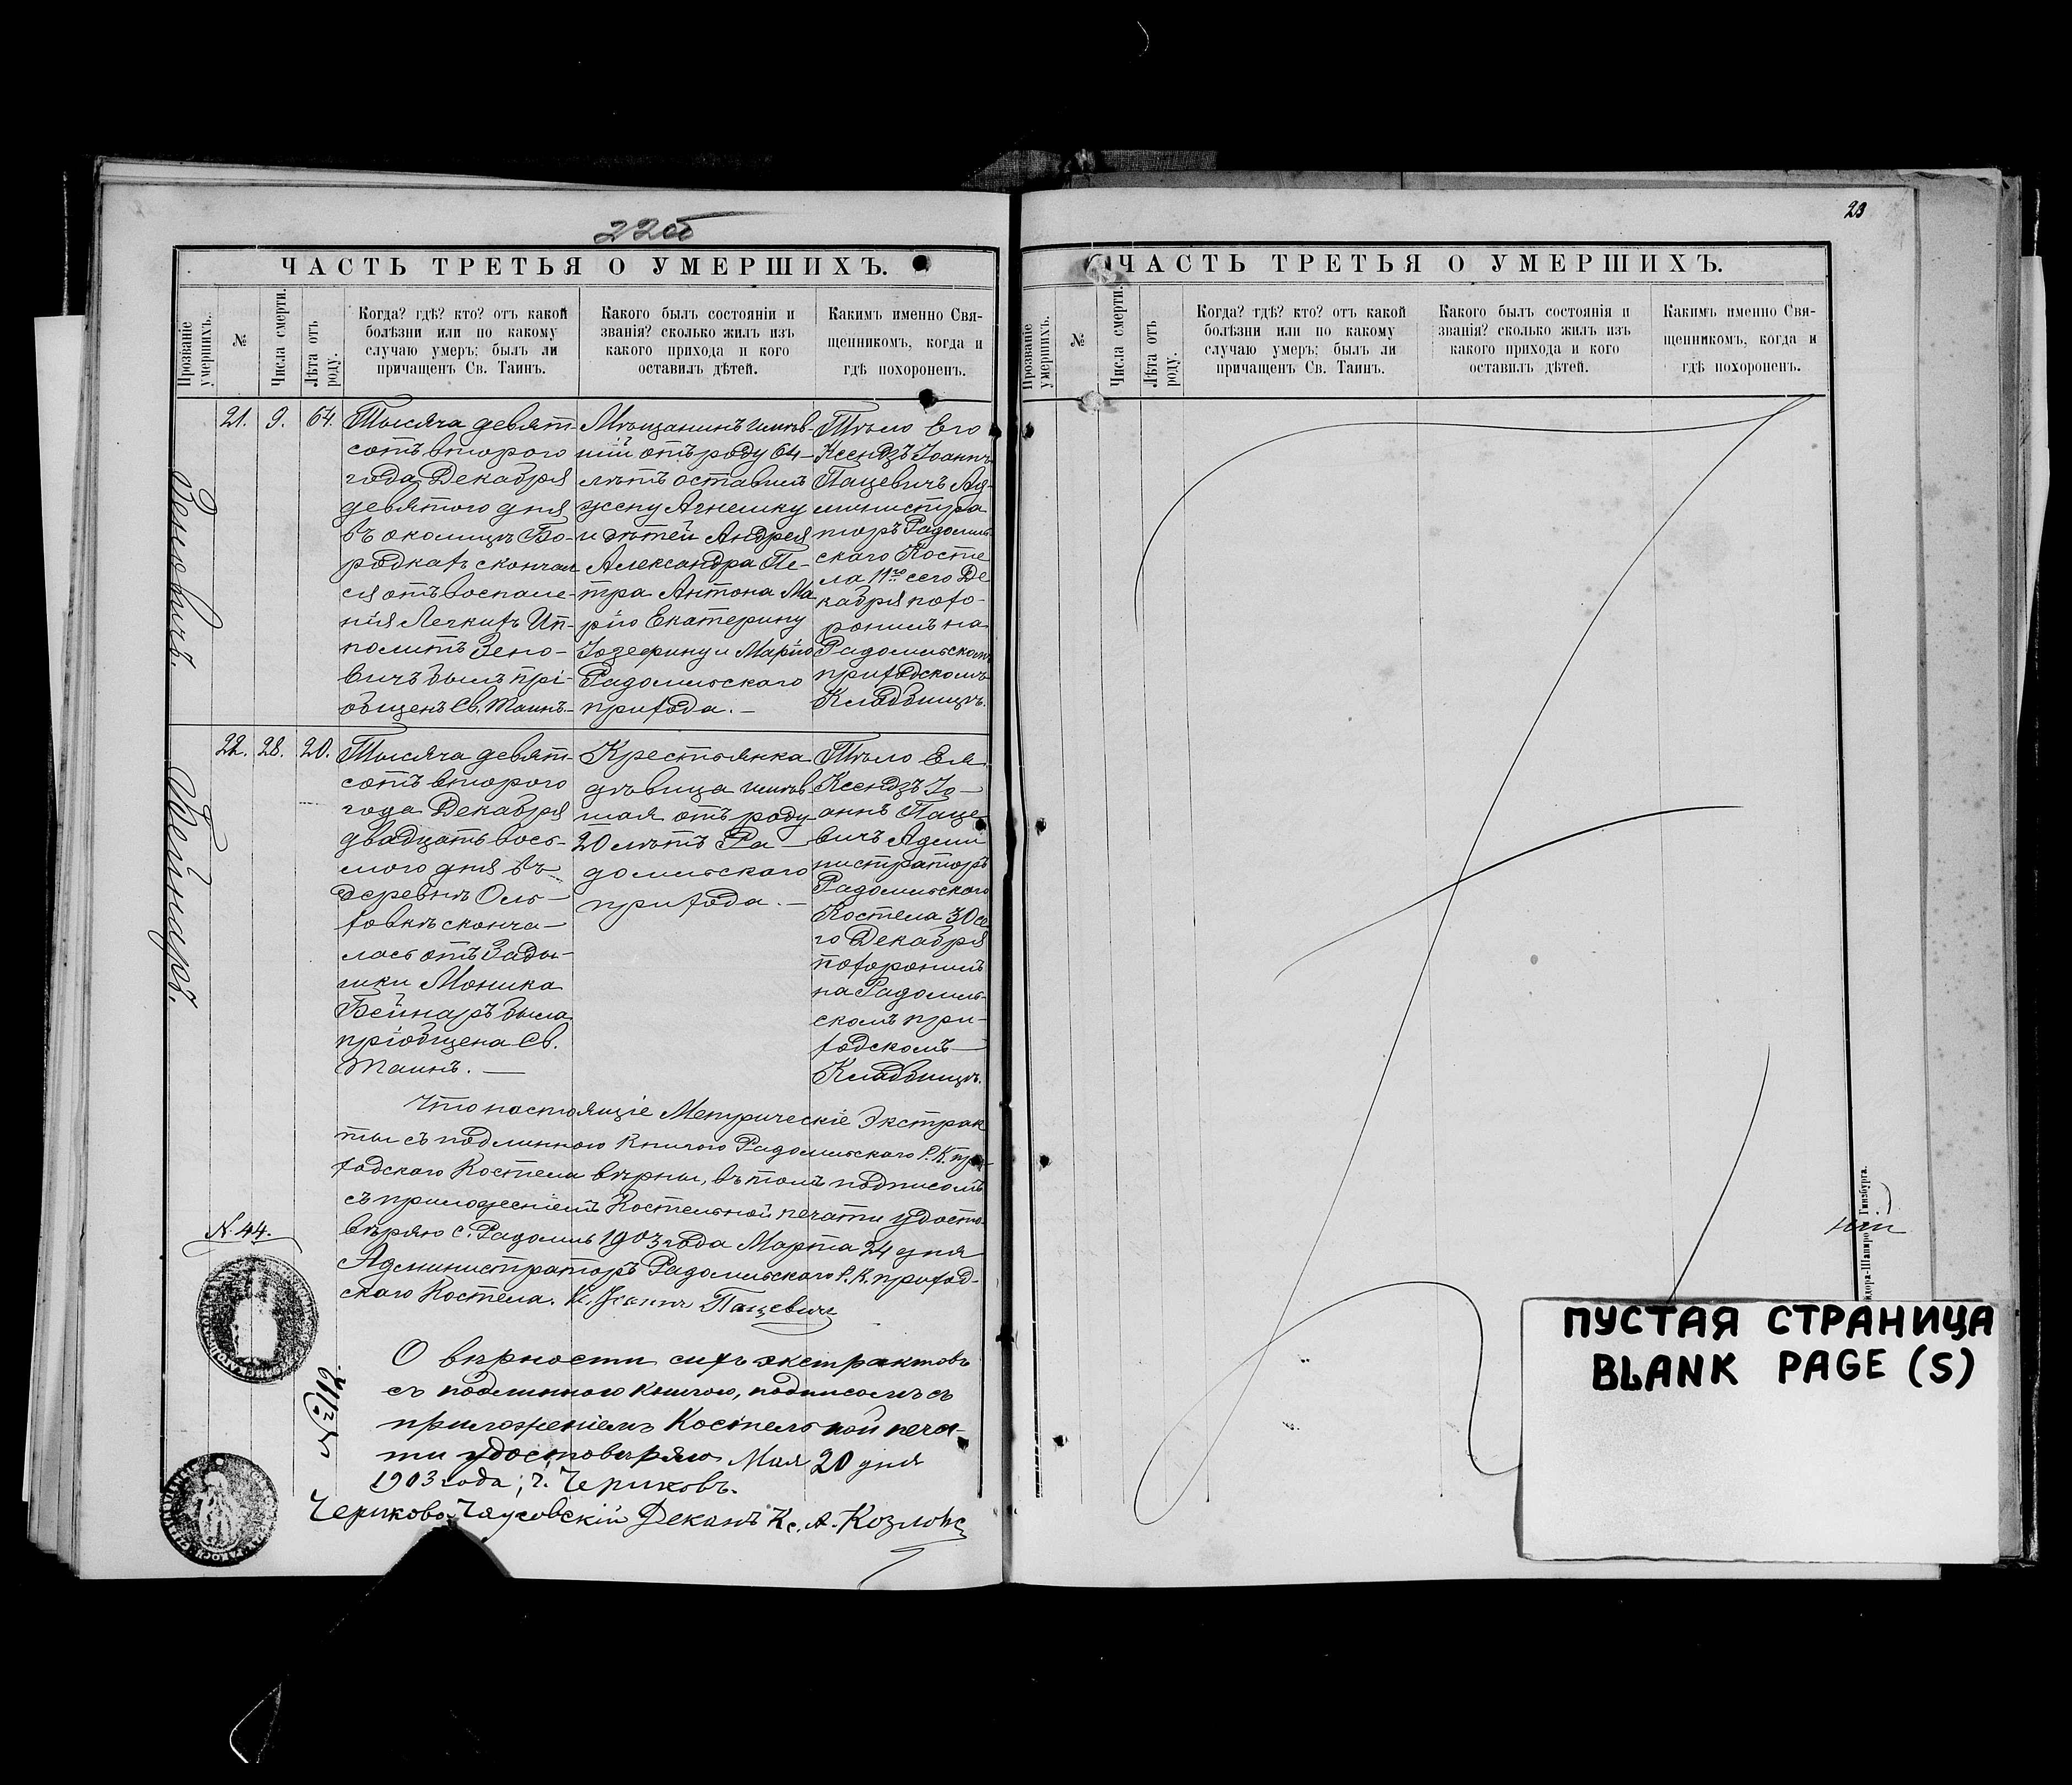 22об
ЧАСТЬ ТРЕТЬЯ О УМЕРШИХЪ.
Прозваніе умершихъ.
№
Числа смерти.
Лѣта отъ роду.
Когда? гдѣ? кто? отъ какой
болѣзни или по какому
случаю умеръ; былъ ли
причащенъ Св. Таинъ.
Какого былъ состоянія и
званія? сколько жилъ изъ
какого прихода и кого
оставилъ дѣтей.
Какимъ именно Свя-
щенникомъ, когда и
гдѣ похороненъ.
Зеновичъ.
21.
9.
64.
Тысяча девят
сотъ второго
года Декабря
девятого дня
въ околицѣ Бо-
родкахъ скончал
ся отъ воспале-
нія Легкихъ Ип-
политъ Зено-
вичъ былъ прі-
общенъ Св. Таинъ.-
Мѣщанинъ имѣв-
шій отъ роду 64-
лѣтъ оставилъ
жену Агнешку
и дѣтей Андрея
Александра Пе-
тра Антона Ма
рію Екатерину
Іозефину и Марію
Радомльскаго
прихода. -
Тѣло Его
Ксендзъ Іоаннъ
Пацевичъ Ад-
министра
торъ Радомль
скаго Косте
ла 11го сего Де
кабря похо-
ронилъ на
Радомльскомъ
приходскомъ
Кладбищѣ.
Бейнаръ.
22.
28.
20.
Тысяча девят
сотъ второго
года Декабря
двадцать вось-
мого дня въ
деревнѣ Оль-
ховкѣ сконча-
лась отъ Зады-
шки Моника
Бейнаръ была
пріобщена Св.
Таинъ. -
Крестьянка
дѣвица имѣв
шая отъ роду
20 лѣтъ Ра-
домльскаго
прихода. -
Тѣло Ея
Ксендзъ Іо-
аннъ Паце
вичъ Адми
нистраторъ
Радомльскаго
Костела 30 се
го Декабря
похоронилъ
на Радомль-
скомъ при-
ходскомъ-
Кладбищѣ.
Что настоящіе Метрическіе Экстрак
ты съ подлинною Книгою Радомльскаго Р. К. при-
ходскаго Костела вѣрны, въ томъ подписомъ
съ приложеніемъ Костельной печати удосто-
вѣряю с. Радомль 1903 года Марта 24 дня
Администраторъ Радомльскаго Р. К. приход-
скаго Костела. К. Іоаннъ Пацевичъ
N. 44.
О вѣрности сихъ экстрактовъ
съ подлинною книгою, подписомъ съ
приложеніемъ Костельной печа-
ти удостовѣряю Мая 20 дня
1903 года; г. Чериковъ.
№ 112.
Чериково-Чаусовскій Деканъ Кс. А. Козловс
23
ЧАСТЬ ТРЕТЬЯ О УМЕРШИХЪ.
Прозваніе умершихъ.
№
Числа смерти.
Лѣта отъ роду.
Когда? гдѣ? кто? отъ какой
болѣзни или по какому
случаю умеръ; былъ ли
причащенъ Св. Таинъ.
Какого былъ состоянія и
званія? сколько жилъ изъ
какого прихода и кого
оставилъ дѣтей.
Какимъ именно Свя-
щенникомъ, когда и
гдѣ похороненъ.
ПУСТАЯ СТРАНИЦА
BLANK PAGE (S)